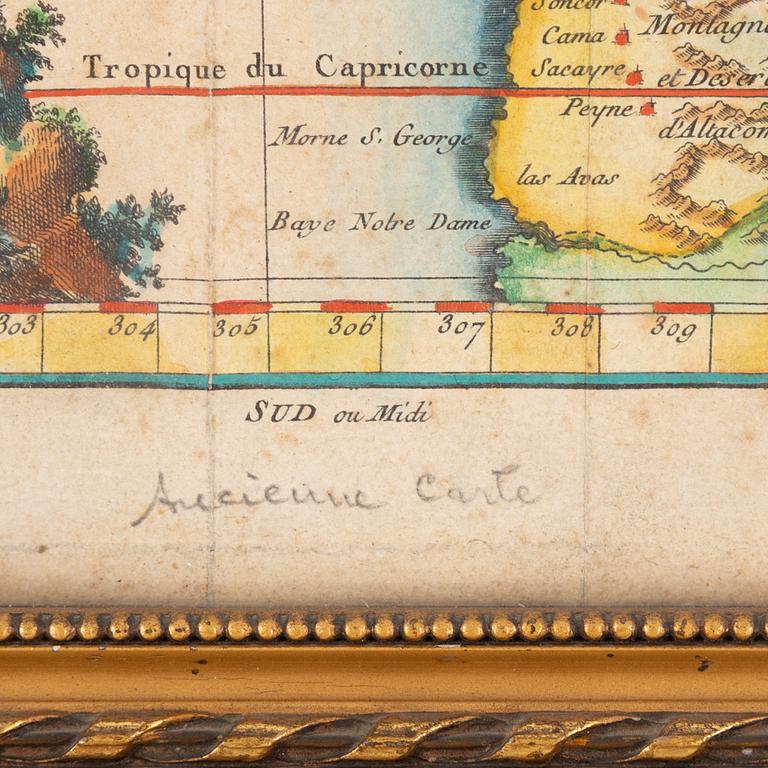 Soncor
Cama
Montagn
Tropique du Capricorne
Sacayre
et Deser
Peyne
d'Altacom
Morne S. George
las Avas
Baye Notre Dame
303 304 305 306 307 308 309
SUD ou Midi
Ancienne Carte